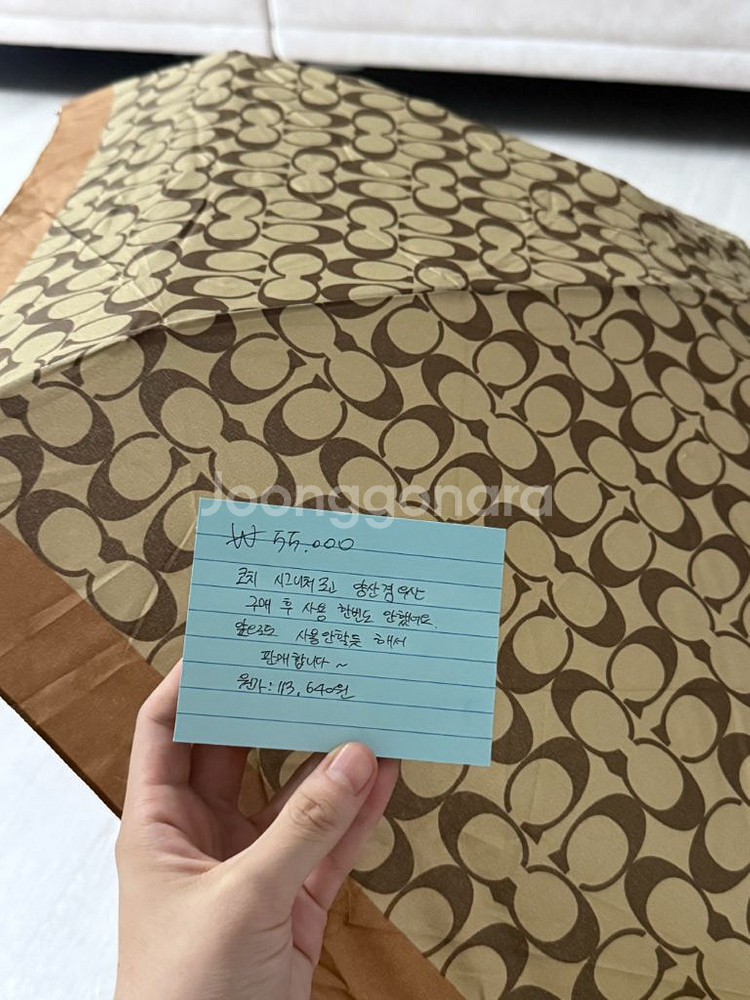 Joonggonara
₩ 55,000
코치 시그니처 로고 양산겸 우산
구매 후 사용 한번도 안했어요.
앞으로도 사용안할듯 해서
판매합니다 ~
원가 : 113,640원